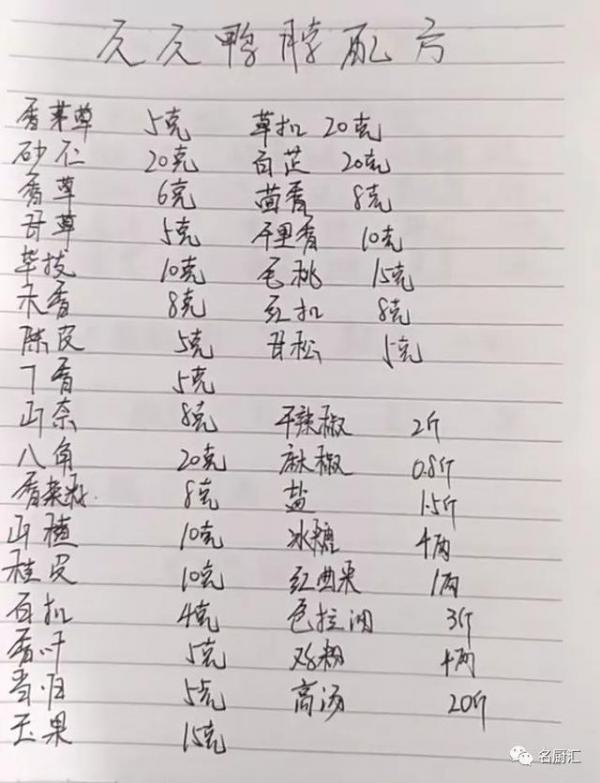 久久鸭脖配方
香茅草 5克 草扣 20克
砂仁 20克 白芷 20克
香草 6克 茴香 8克
甘草 5克 千里香 10克
毕拔 10克 毛桃 15克
木香 8克 红扣 8克
陈皮 5克 甘松 5克
丁香 5克
山奈 8克 干辣椒 2斤
八角 20克 麻椒 0.8斤
香菜籽 8克 盐 1.5斤
山楂 10克 冰糖 4两
桂皮 10克 红曲米 1两
白扣 4克 色拉油 3斤
香叶 5克 鸡粉 4两
当归 5克 高汤 20斤
玉果 15克
名厨汇